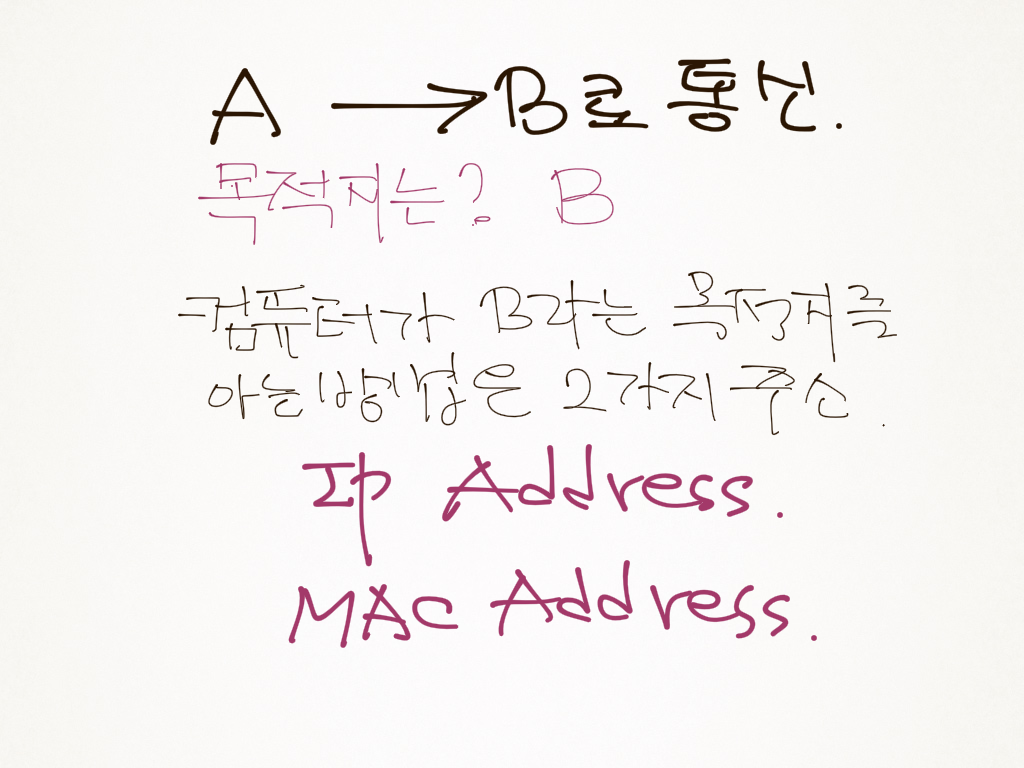 A → B로 통신.
목적지는? B
컴퓨터가 B라는 목적지를
아는 방법은 2가지 주소.
IP Address.
MAC Address.